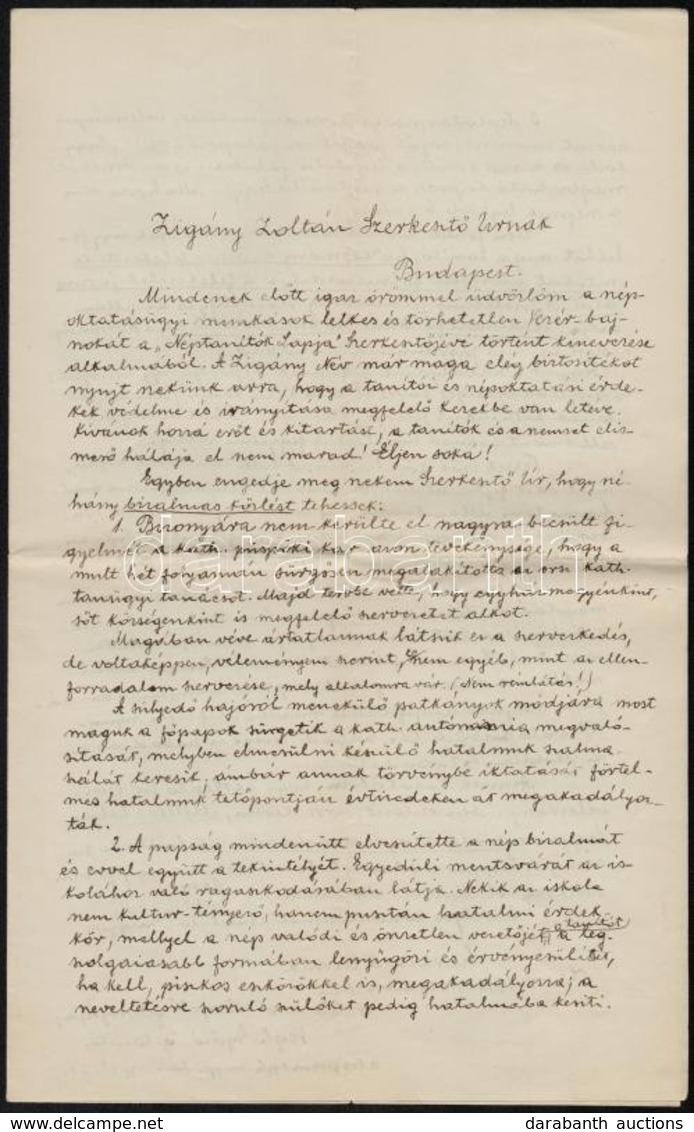 Zigány Zoltán Szerkesztő Úrnak
Budapest.
Mindenek előtt igaz örömmel üdvözlöm a nép-
oktatásügyi munkások lelkes és törhetetlen vezér-baj-
nokát a „Néptanítók Lapja" szerkesztőjévé történt kinevezése
alkalmából. A Zigány Név már maga elég biztosítékot
nyujt nekünk arra, hogy a tanítói és népoktatási érde-
kek védelme és irányítása megfelelő kezekbe van letéve.
Kivánok hozzá erőt és kitartást, a tanítók és a nemzet elis-
merő hálája el nem marad! Éljen soká!
Egyben engedje meg nekem Szerkesztő Úr, hogy né-
hány bizalmas közlést tehessek:
1. Bizonyára nem kerülte el nagyra becsült fi-
gyelmét a kath. püspöki kar azon tevékenysége, hogy a
mult hét folyamán sürgősen megalakította az orsz. kath.
tanügyi tanácsot. Majd tervbe vette, hogy egyházmegyénkint,
sőt községenkint is megfelelő szervezetet alkot.
Magában véve ártatlannak látszik ez a szervezkedés,
de voltaképpen, véleményem szerint, nem egyéb, mint az ellen-
forradalom szervezése, mely alkalomra vár. (Nem rémlátás!)
A sülyedő hajóról menekülő patkányok módjára most
maguk a főpapok sürgetik a kath. autonomia megvaló-
sítását, melyben elveszülni készülő hatalmuk szalma-
szálát keresik, ámbár annak törvénybe iktatását förtel-
mes hatalmuk tetőpontján évtizedeken át megakadályoz-
ták.
2. A papság mindenütt elveszítette a nép bizalmát
és evvel együtt a tekintélyét. Egyedüli mentsvárát az is-
kolához való ragaszkodásában látja. Nekik az iskola
nem kultur-tényező, hanem pusztán hatalmi érdek-
kör, mellyel a nép valódi és önzetlen vezetőjét, a tanítót a leg-
szolgaiasabb formában lenyügözi és érvényesülését,
ha kell, piszkos eszközökkel is, megakadályozza; a
neveltetésre szoruló szülőket pedig hatalmába keríti.
darabanth
darabanth auctions